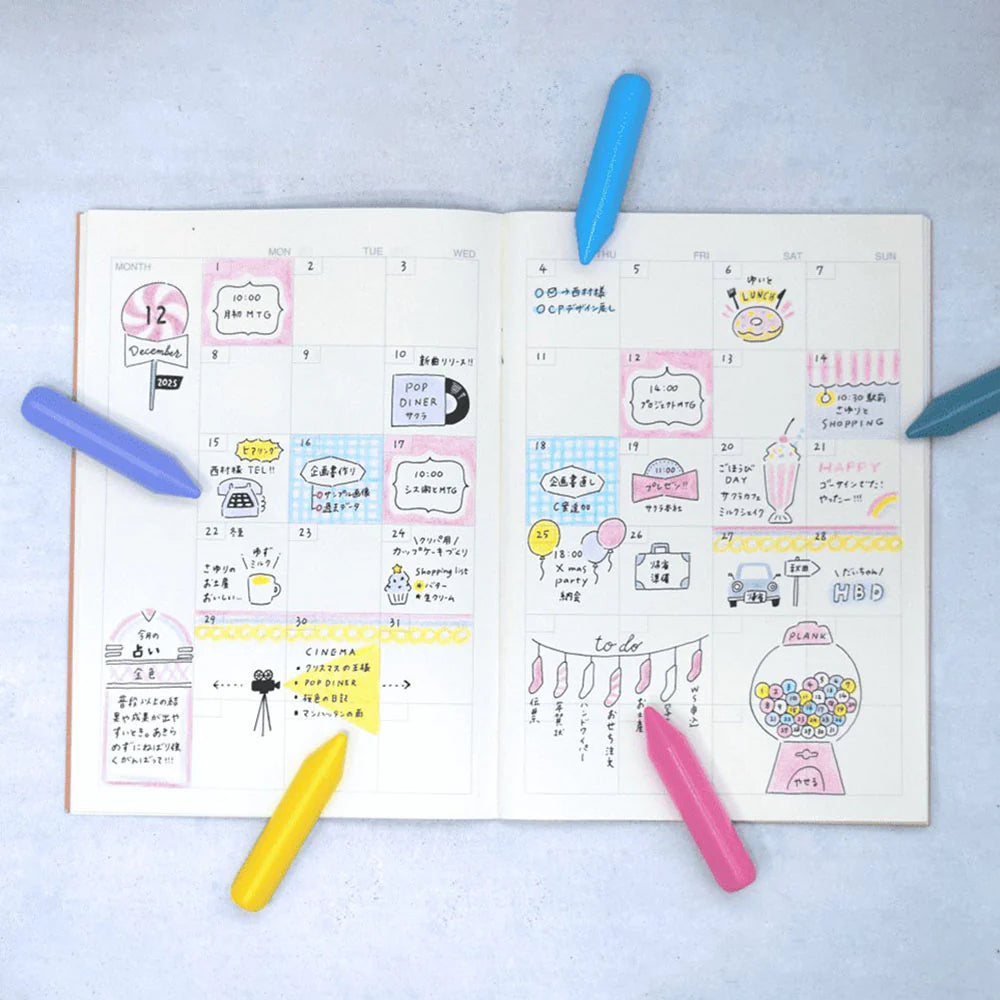 MONTH
MON
TUE
WED
THU
FRI
SAT
SUN
12
December
2025
1
10:00
月初 MTG
2
3
4
→西村様
CPデザイン戻し
5
6
ゆいと
LUNCH
7
8
9
10
新曲リリース!!
POP
DINER
サクラ
11
12
14:00
プロジェクトMTG
13
14
10:30 駅前
さゆりと
SHOPPING
15
ヒアリング
西村様 TEL!!
16
企画書作り
サンプル画像
過去データ
17
10:00
シス術とMTG
18
企画書直し
C案追加
19
11:00
プレゼン!!
サクラ本社
20
ごほうび
DAY
サクラカフェ
ミルクシェイク
21
HAPPY
ゴーサインでた!
やったー!!!
22
冬至
ゆず
ミルク
さゆりの
お土産
おいしい…
23
24
クリパ用
カップケーキづくり
Shopping list
バター
生クリーム
25
18:00
Xmas
party
納会
26
帰省
準備
27
帰省
秋田
28
だいちゃん
HBD
29
30
31
CINEMA
クリスマスの王様
POP DINER
桜色の日記
マンハッタンの雨
今月の
占い
金色
普段以上の結
果や成果が出や
すいとき。あきら
めずにねばり強
くがんばって!!!
to do
伝票
年賀状
ハンドクイバー
おせち注文
お土産
PLANK
やせる